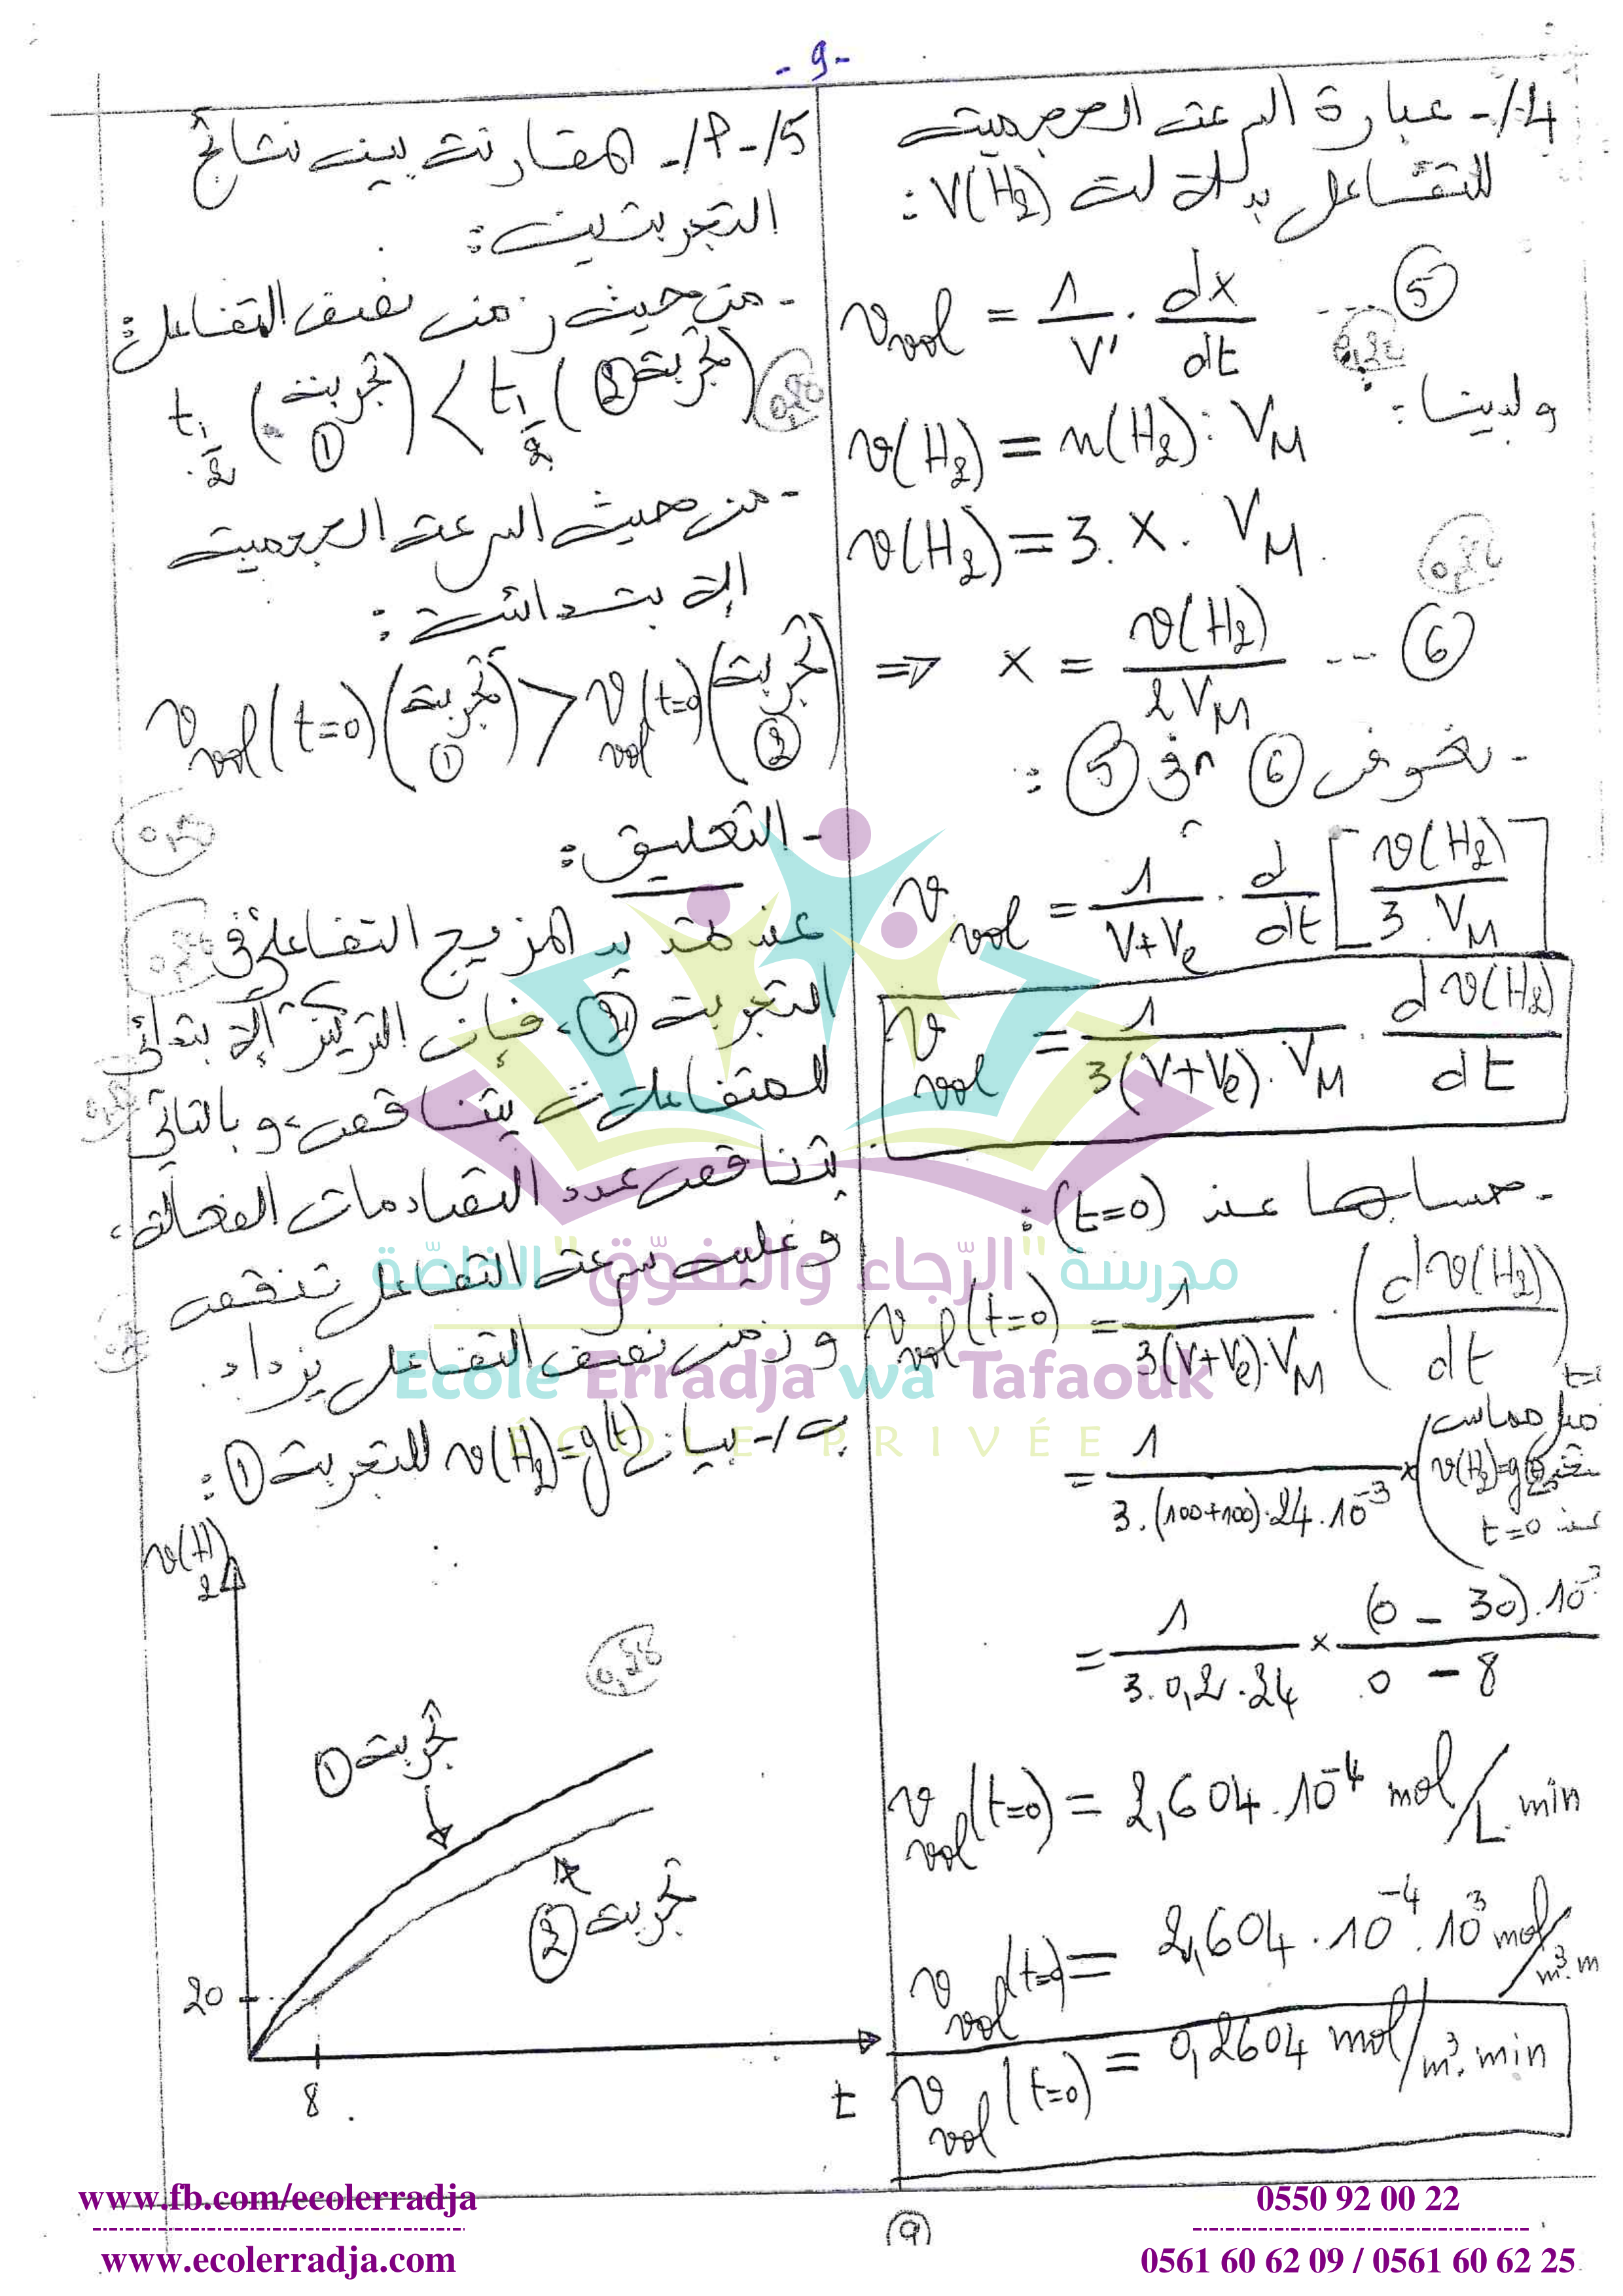 - 9 -
4/- عبارة السرعة الحجمية
للتفاعل بدلالة V(H₂) :
v_vol = 1/V' . dx/dt --- ⑤
0,25
ولدينا :
v(H₂) = n(H₂) . V_M
v(H₂) = 3. x. V_M.
0,25
⇒ x = v(H₂)/2V_M --- ⑥
- نعوض ⑥ في ⑤ :
v_vol = 1/V+Ve . d/dt [v(H₂)/3.V_M]
v_vol = 1/3(V+Ve).V_M . dv(H₂)/dt
- حسابها عند (t=0) :
v_vol(t=0) = 1/3(V+Ve).V_M . (dv(H₂)/dt)
= 1/3.(100+100).24.10⁻³ × (ميل مماس
v(H₂)=g(t)
عند t=0
= 1/3.0,2.24 × (0 - 30).10⁻³/0 - 8
v_vol(t=0) = 2,604.10⁻⁴ mol/L.min
v_vol(t=0) = 2,604.10⁻⁴.10³ mol/m³.m
v_vol(t=0) = 0,2604 mol/m³.min
5/- أ/- المقارنة بين نتائج
التجربتين :
- من حيث زمن نصف التفاعل :
t½ (تجربة ①) < t½ (تجربة ②)
- من حيث السرعة الحجمية
الإبتدائية :
v_vol(t=0) (تجربة ①) > v_vol(t=0) (تجربة ②)
- التعليق :
عند تمديد المزيج التفاعلي في
التجربة ②، فإن التركيز الإبتدائي
للمتفاعلات يتناقص، وبالتالي
يتناقص عدد التصادمات الفعالة،
وعليه سرعة التفاعل تنقص
وزمن نصف التفاعل يزداد.
ب/- بيان v(H₂)=g(t) للتجربة ① :
v(H₂)
0,25
تجربة ①
تجربة ②
20
8
t
مدرسة "الرّجاء والتفوّق" الخاصّة
Ecole Erradja wa Tafaouk
ÉCOLE PRIVÉE
www.fb.com/ecolerradja
www.ecolerradja.com
⑨
0550 92 00 22
0561 60 62 09 / 0561 60 62 25